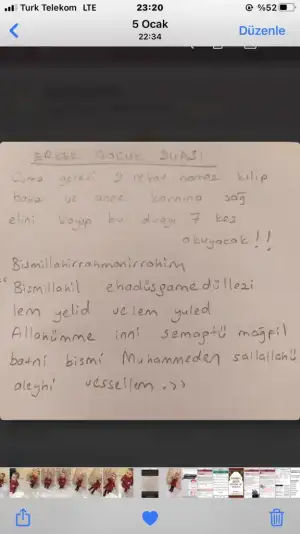 Turk Telekom LTE 23:20 %52
5 Ocak
22:34
Düzenle
ERKEK ÇOCUK DUASI
Cuma gecesi 2 rekat namaz kılıp
baba ve anne karnına sağ
elini koyup bu duayı 7 kez
okuyacak!!
Bismillahirrahmanirrahim
"Bismillahil ehadüssamedüllezi
lem yelid velem yuled
Allahümme inni semaptü
batni bismi Muhammeden sallallahü
aleyhi vessellem.,,